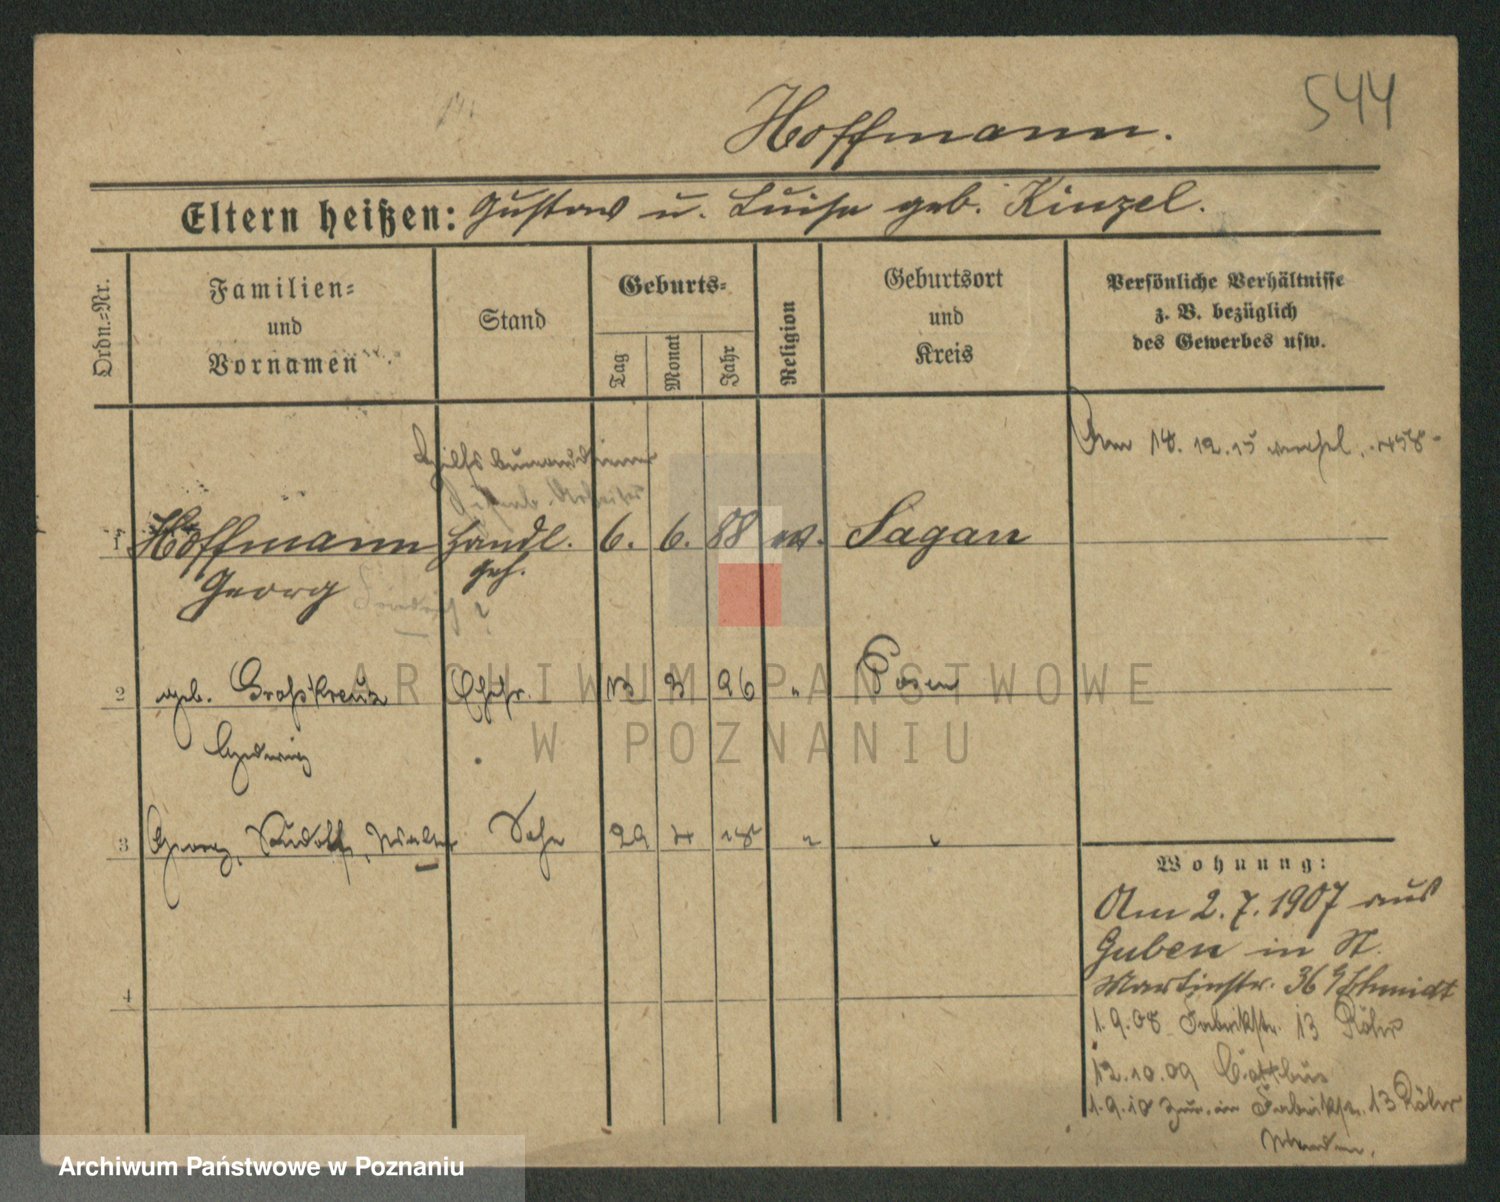 544
Hoffmann.
Eltern heißen: Gustav u. Luise geb. Kinzel.
Ordn.=Nr.
Familien=
und
Vornamen
Stand
Geburts=
Tag
Monat
Jahr
Religion
Geburtsort
und
Kreis
Persönliche Verhältnisse
z. B. bezüglich
des Gewerbes usw.
Am 18. 12. 15
1 Hoffmann Handl. 6. 6. 88 ev. Sagan
Georg geh.
2 geb. Großkreuz Ehefr. 13 3 96 " Posen
Hedwig
3 Georg, Rudolf, Walter Sohn 29 4 18 " "
4
Wohnung:
Am 2. 7. 1907 aus
Guben in St.
Martinstr. 36 b/ Schmidt
1.9.08 Fabrikstr. 13 Röhr
12.10.09 Cottbus
1.9.10 zur. in Fabrikstr. 13 Röhr
ARCHIWUM PAŃSTWOWE
W POZNANIU
Archiwum Państwowe w Poznaniu